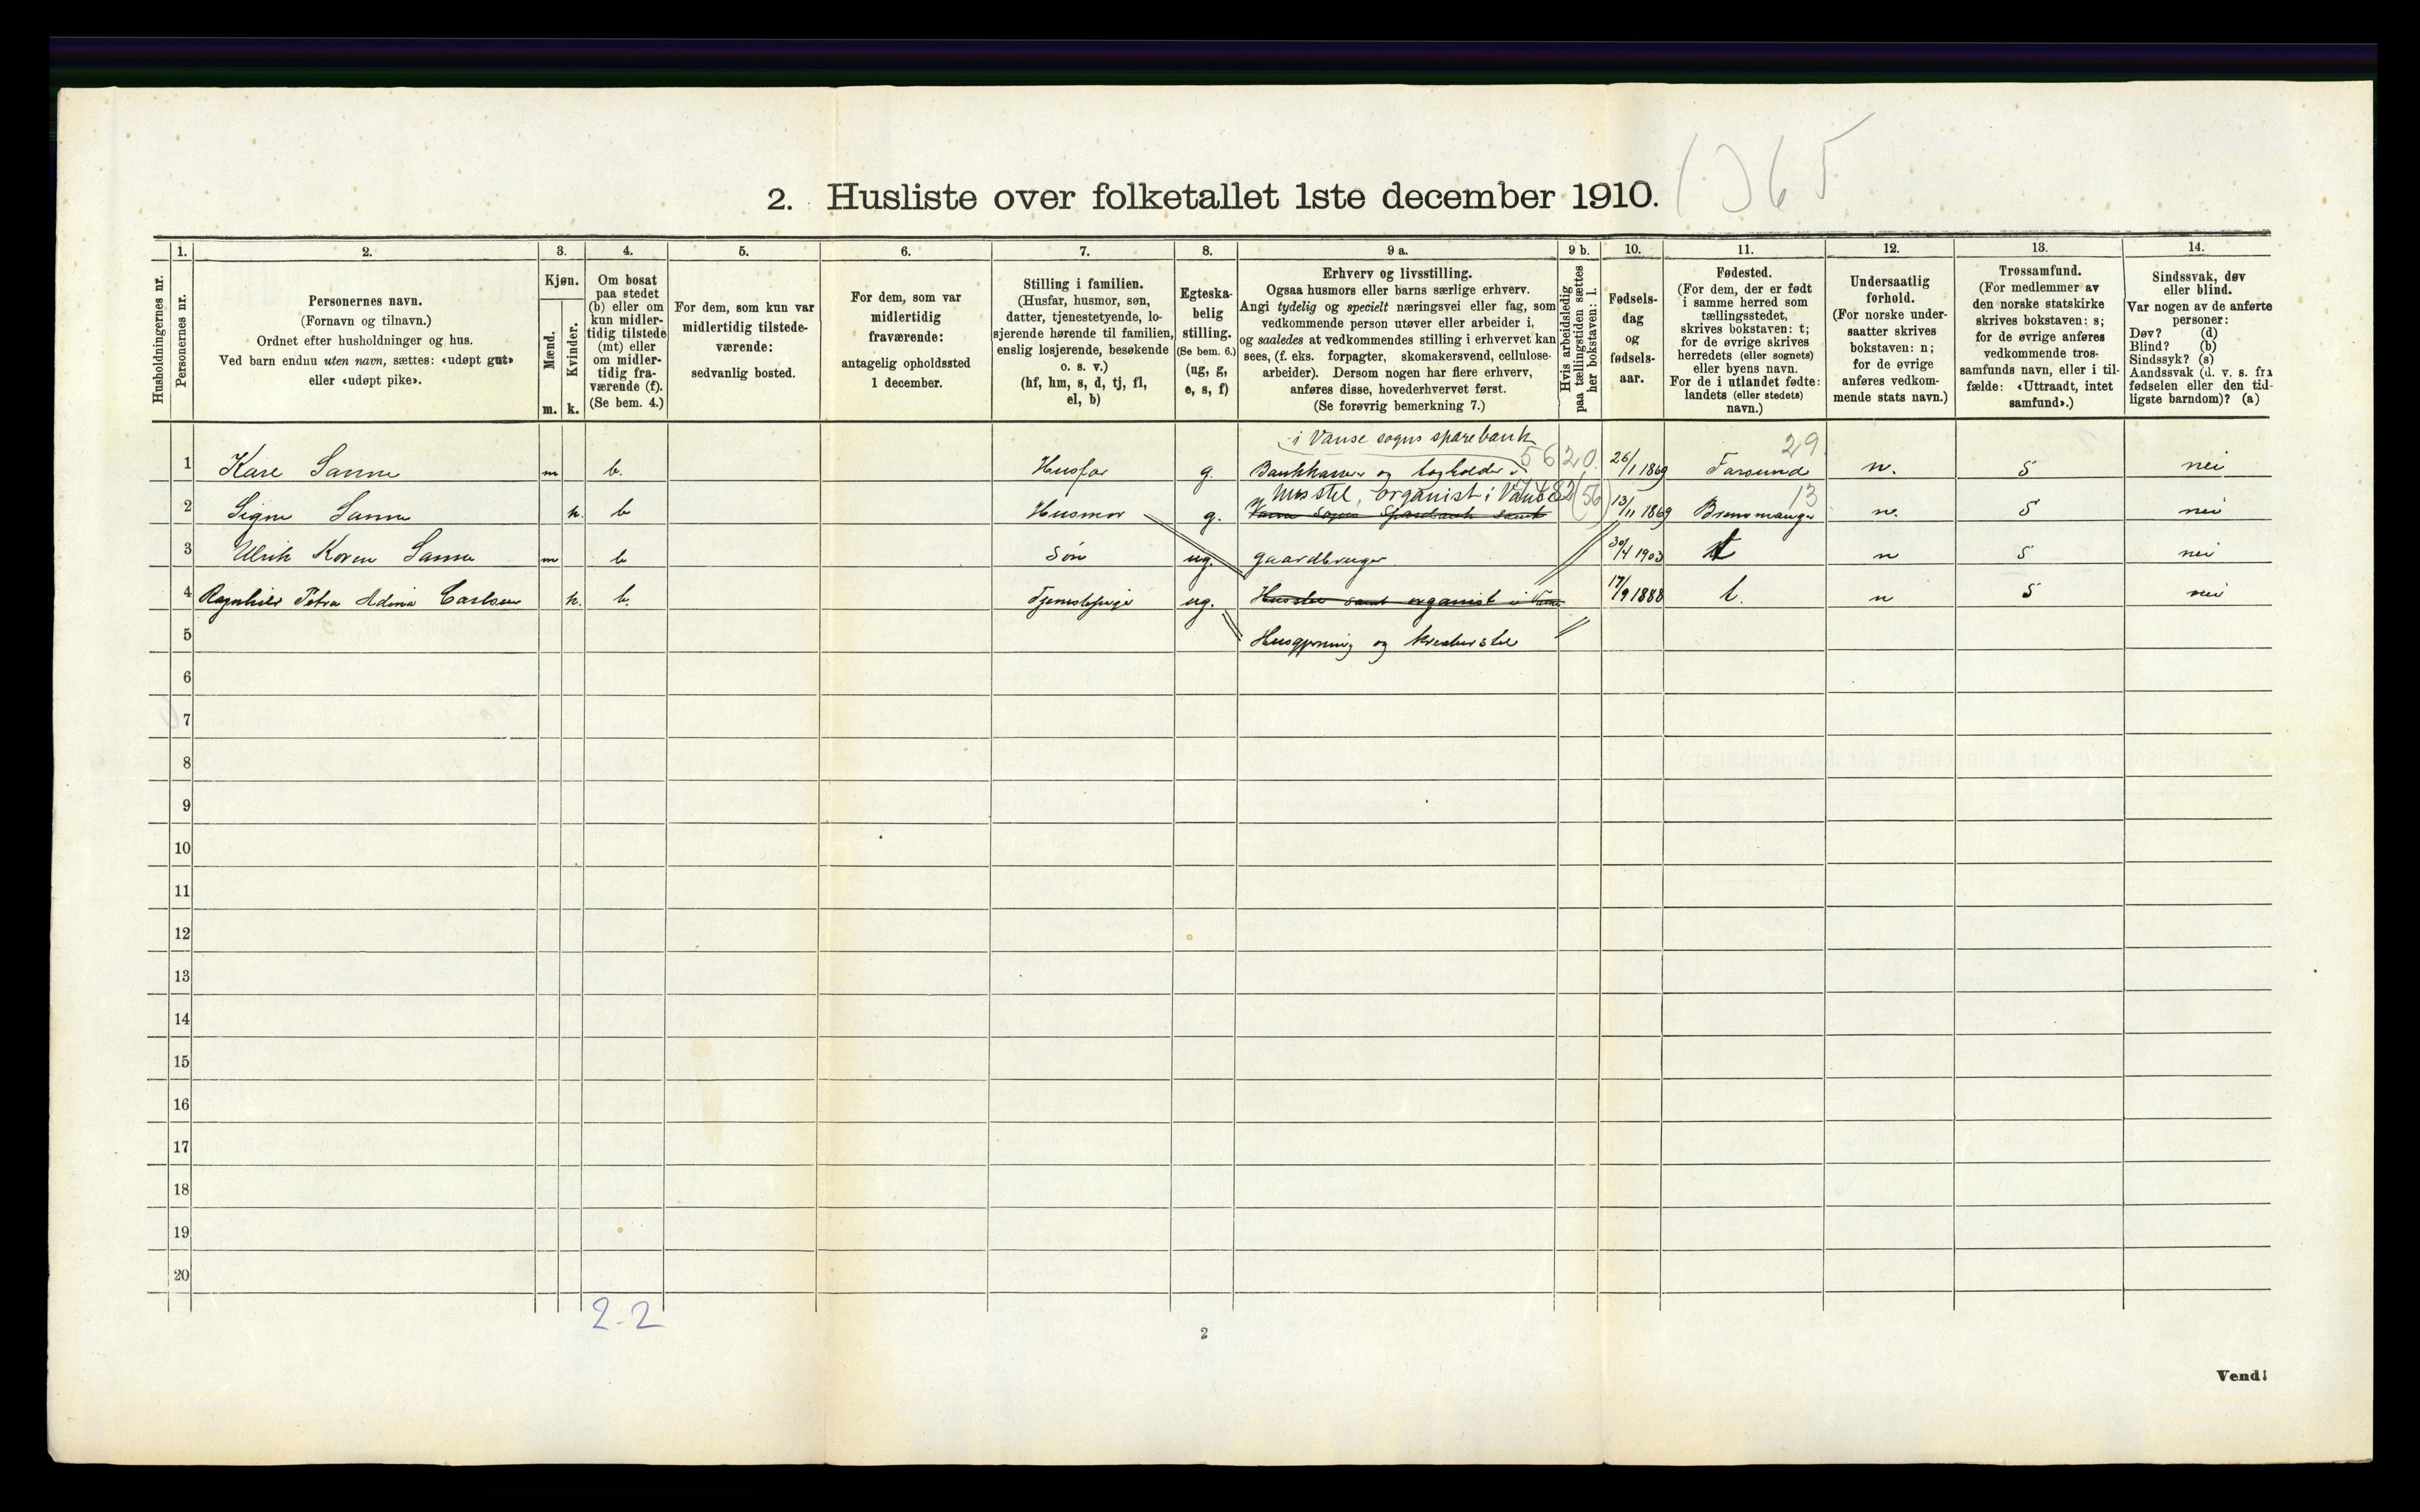 2. Husliste over folketallet 1ste december 1910.
1365
Husholdningernes nr.
1.
Personernes nr.
2.
Personernes navn.
(Fornavn og tilnavn.)
Ordnet efter husholdninger og hus.
Ved barn endnu uten navn, sættes: «udøpt gut»
eller «udøpt pike».
3.
Kjøn.
Mænd.
Kvinder.
m. k.
4.
Om bosat
paa stedet
(b) eller om
kun midler-
tidig tilstede
(mt) eller
om midler-
tidig fra-
værende (f).
(Se bem. 4.)
5.
For dem, som kun var
midlertidig tilstede-
værende:
sedvanlig bosted.
6.
For dem, som var
midlertidig
fraværende:
antagelig opholdssted
1 december.
7.
Stilling i familien.
(Husfar, husmor, søn,
datter, tjenestetyende, lo-
sjerende hørende til familien,
enslig losjerende, besøkende
o. s. v.)
(hf, hm, s, d, tj, fl,
el, b)
8.
Egteska-
belig
stilling.
(Se bem. 6.)
(ug, g,
e, s, f)
9 a.
Erhverv og livsstilling.
Ogsaa husmors eller barns særlige erhverv.
Angi tydelig og specielt næringsvei eller fag, som
vedkommende person utøver eller arbeider i,
og saaledes at vedkommendes stilling i erhvervet kan
sees, (f. eks. forpagter, skomakersvend, cellulose-
arbeider). Dersom nogen har flere erhverv,
anføres disse, hovederhvervet først.
(Se forøvrig bemerkning 7.)
9 b.
Hvis arbeidsledig
paa tællingstiden sættes
her bokstaven: l.
10.
Fødsels-
dag
og
fødsels-
aar.
11.
Fødested.
(For dem, der er født
i samme herred som
tællingsstedet,
skrives bokstaven: t;
for de øvrige skrives
herredets (eller sognets)
eller byens navn.
For de i utlandet fødte:
landets (eller stedets)
navn.)
12.
Undersaatlig
forhold.
(For norske under-
saatter skrives
bokstaven: n;
for de øvrige
anføres vedkom-
mende stats navn.)
13.
Trossamfund.
(For medlemmer av
den norske statskirke
skrives bokstaven: s;
for de øvrige anføres
vedkommende tros-
samfunds navn, eller i til-
fælde: «Uttraadt, intet
samfund».)
14.
Sindssvak, døv
eller blind.
Var nogen av de anførte
personer:
Døv? (d)
Blind? (b)
Sindssyk? (s)
Aandssvak (d. v. s. fra
fødselen eller den tid-
ligste barndom)? (a)
i Vanse sogns sparebank
5620
29
1 Kare Sanne m b. Husfar g. Bankkasserer og bogholder i 26/1 1869 Farsund n. s nei
Husstel, organist i Vanse
82 (56)
13
2 Signe Sanne k. b Husmor g. Vanse Sogns Sparebank samt 13/11 1869 Bremmanger n. s nei
3 Ulrik Koren Sanne m b Søn ug. gaardbruger 30/4 1903 t n s nei
4 Ragnhild Petra Adina Carlsen k. b. Tjenestepige ug. Husstel samt organist i Vanse 17/9 1888 t. n s nei
5 Husgjerning og kreaturstel
6
7
8
9
10
11
12
13
14
15
16
17
18
19
20
2-2
2
Vend!